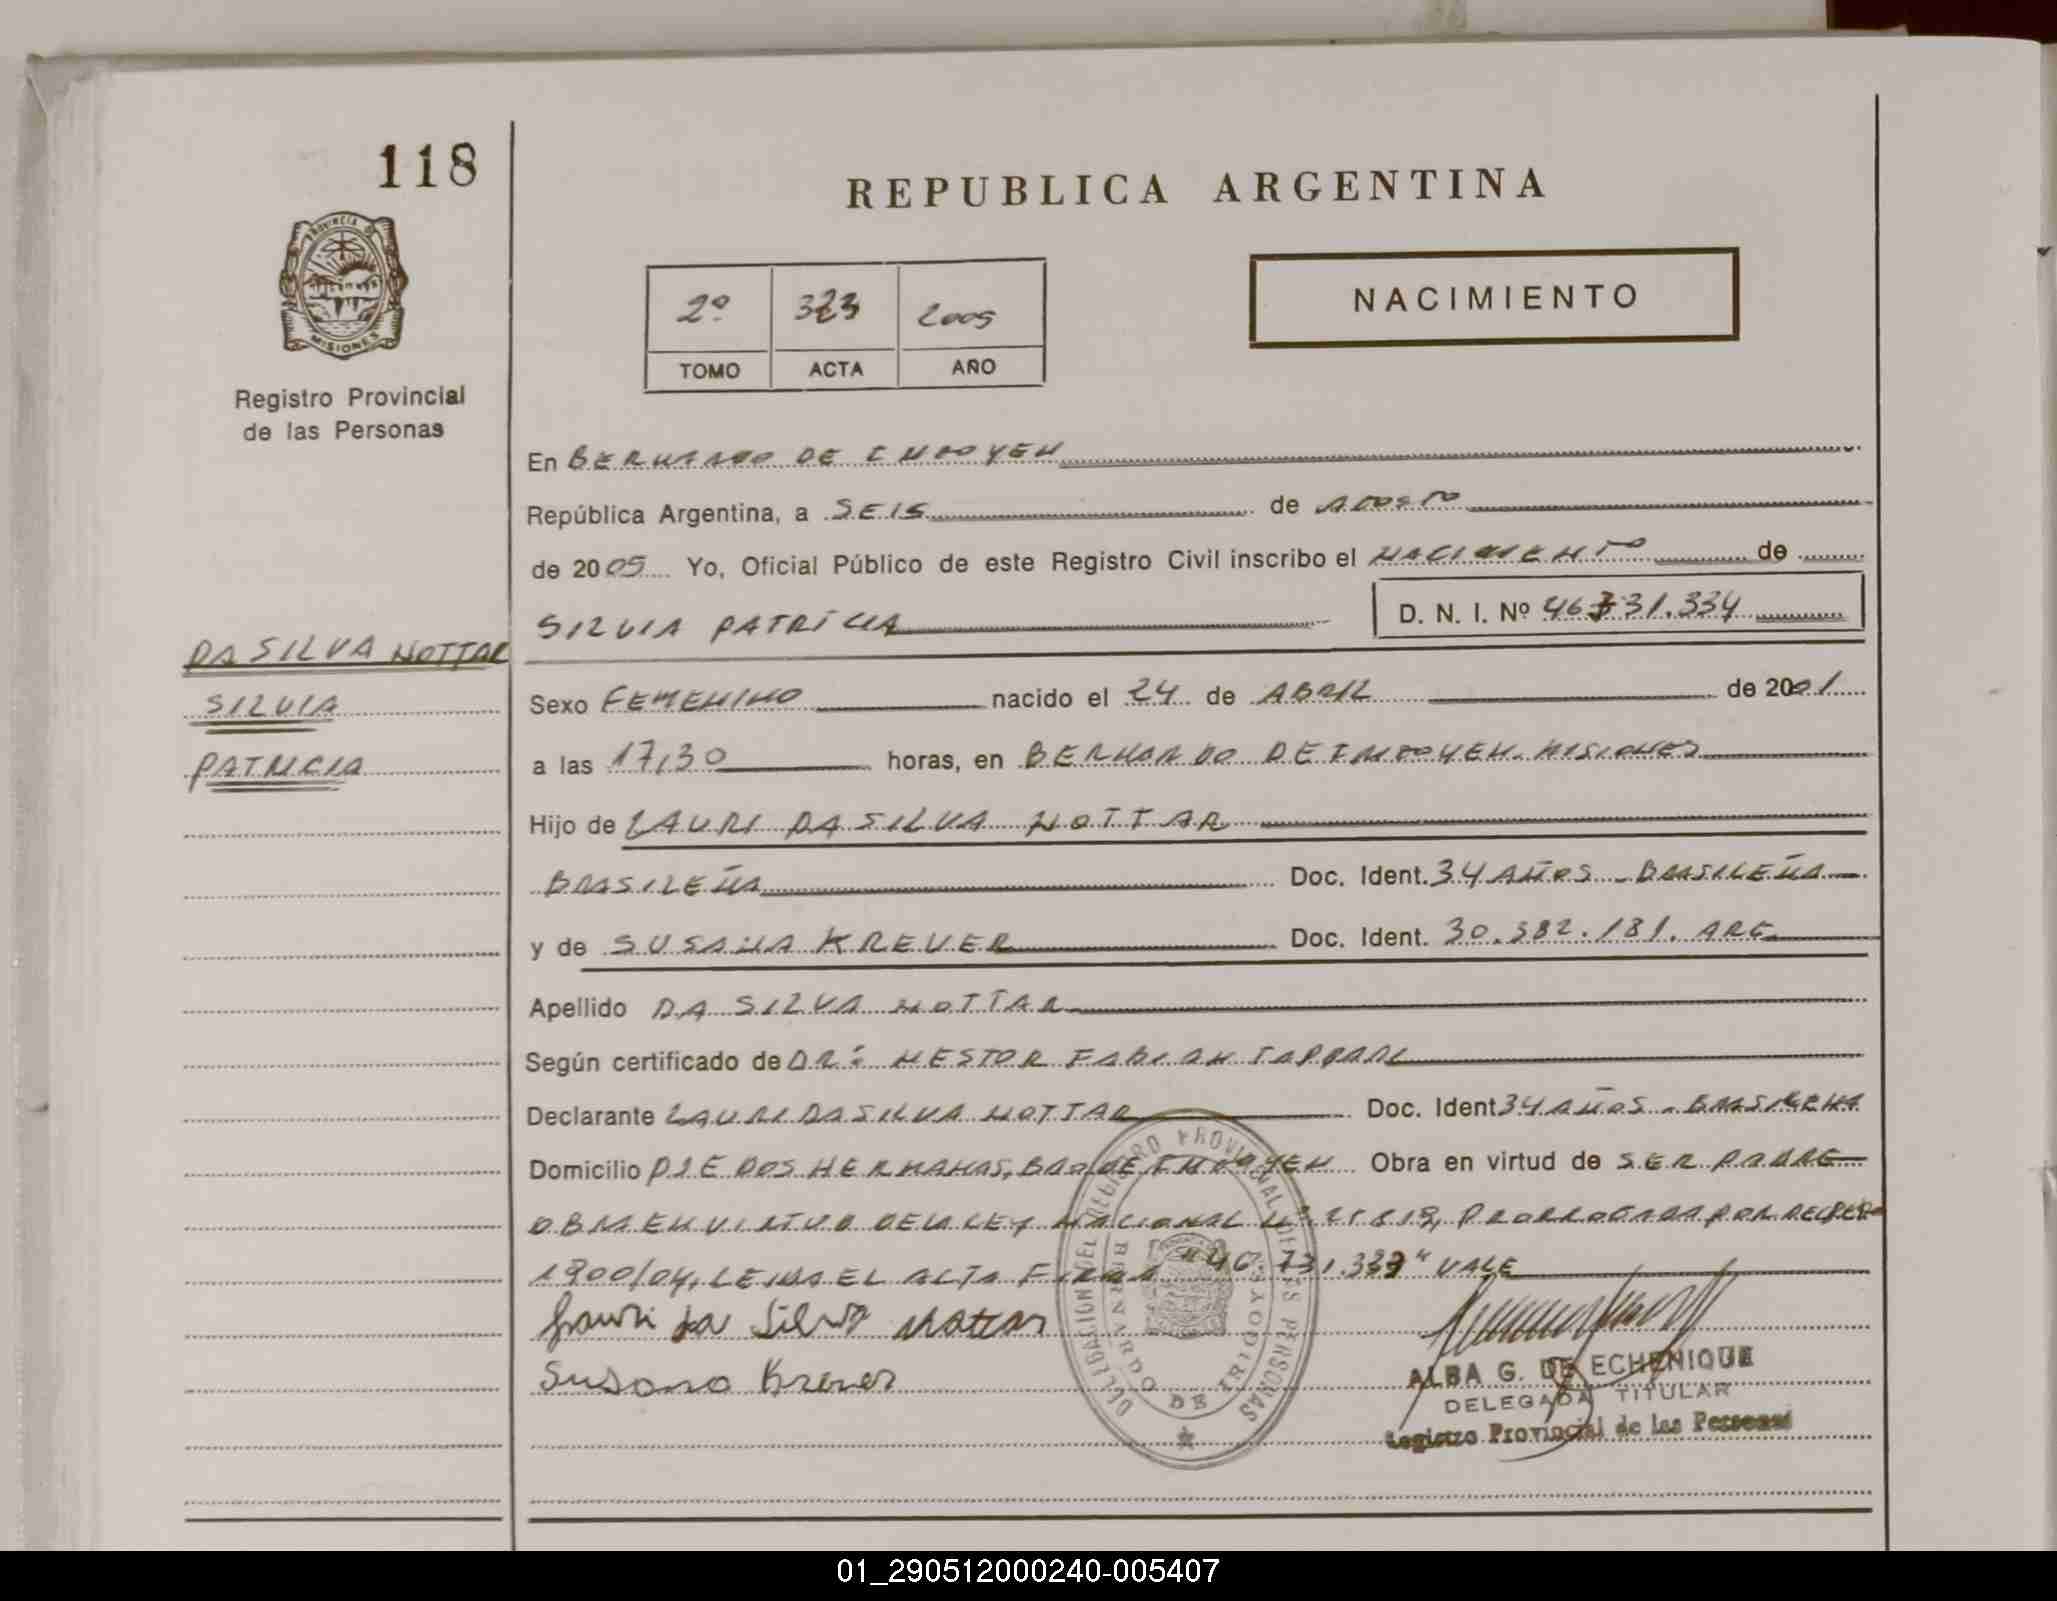 118
REPUBLICA ARGENTINA
PROVINCIA DE
MISIONES
2º 323 2005
TOMO ACTA AÑO
NACIMIENTO
Registro Provincial
de las Personas
En BERNARDO DE IRIGOYEN
República Argentina, a SEIS de AGOSTO
de 2005 Yo, Oficial Público de este Registro Civil inscribo el NACIMIENTO de
SILVIA PATRICIA D. N. I. Nº 46.731.334
DA SILVA NOTTAR
SILVIA
PATRICIA
Sexo FEMENINO nacido el 24 de ABRIL de 2001
a las 17,30 horas, en BERNARDO DE IRIGOYEN. MISIONES
Hijo de LAURI DA SILVA NOTTAR
BRASILEÑA Doc. Ident. 34 AÑOS - BRASILEÑA
y de SUSANA KREVER Doc. Ident. 30.582.181. ARG
Apellido DA SILVA NOTTAR
Según certificado de DR: NESTOR FABIAN
Declarante LAURI DA SILVA NOTTAR Doc. Ident 34 AÑOS - BRASILEÑA
Domicilio PJE DOS HERMANAS, BDO DE IRIGOYEN Obra en virtud de SER PADRE
OBRA EN VIRTUD DE LA LEY NACIONAL Nº 25.819, PRORROGADA POR DECRETO
1900/04, LEIDA EL ACTA FIRMAN "46.731.334" VALE
Lauri da Silva Nottar
Susana Krever
DELEGACION DEL REGISTRO PROVINCIAL DE LAS PERSONAS
BERNARDO DE IRIGOYEN
ALBA G. DE ECHENIQUE
DELEGADA TITULAR
Registro Provincial de las Personas
01_290512000240-005407